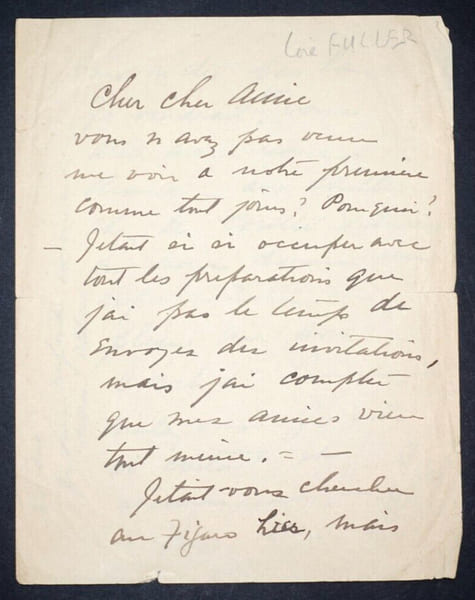 Loïe FULLER
Cher cher Amie
vous n avez pas venu
me voir a notre première
comme tout jours? Pourquoi?
— Jetait si si occuper avec
tout les preparations que
j'ai pas le temps de
Envoyez des invitations,
mais j'ai compté
que mes amies vien
tout même. = —
Jetait vous chercher
au Figaro hier, mais